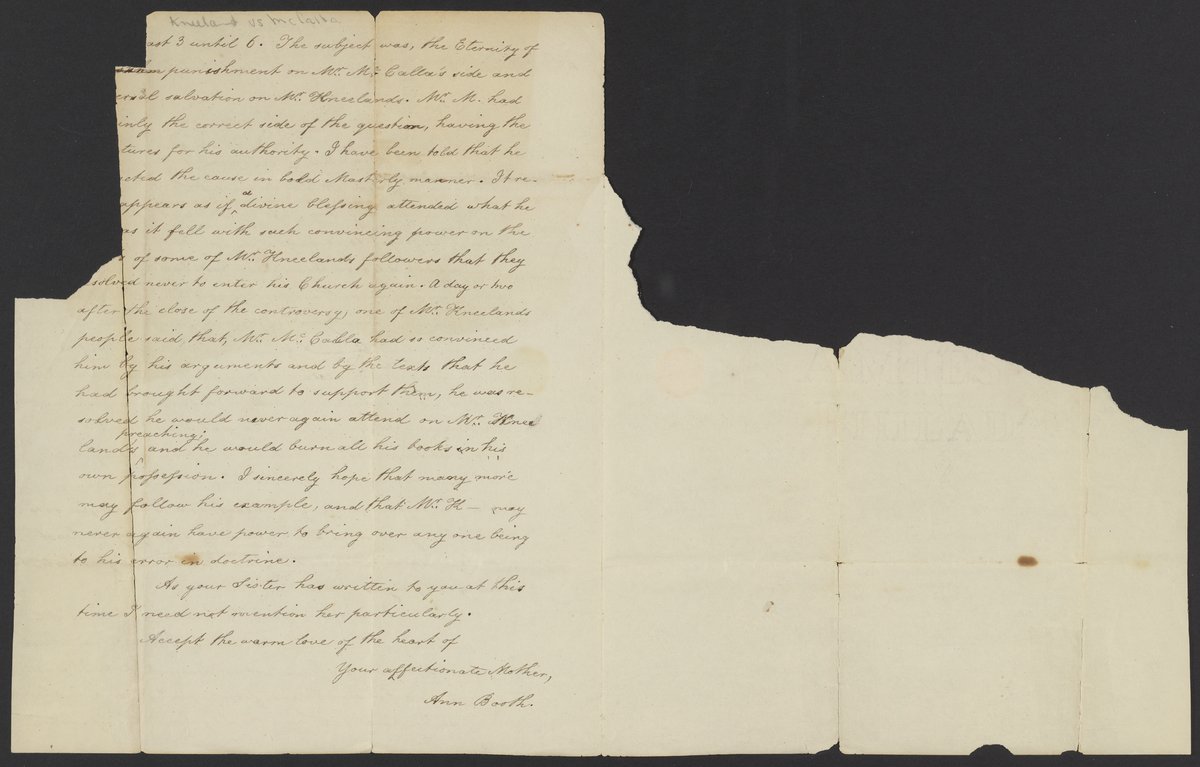 Kneeland vs McCalla
ast 3 until 6. The subject was, the Eternity of
punishment on Mr. Mc. Calla's side and
ersal salvation on Mr. Kneelands. Mr. M. had
inly the correct side of the question, having the
tures for his authority. I have been told that he
ucted the cause in bold Masterly manner. It re-
appears as if a divine blessing attended what he
as it fell with such convincing power on the
s of some of Mr. Kneelands followers that they
solved never to enter his Church again. A day or two
after the close of the controversy, one of Mr. Kneelands
people said that, Mr. Mc. Calla had so convinced
him by his arguments and by the texts that he
had brought forward to support them, he was re-
solved he would never again attend on Mr. Kneel
lands preaching; and he would burn all his books in his
own possession. I sincerely hope that many more
may follow his example, and that Mr. K— may
never again have power to bring over any one being
to his error in doctrine.
As your Sister has written to you at this
time I need not mention her particularly.
Accept the warm love of the heart of
Your affectionate Mother,
Ann Booth.